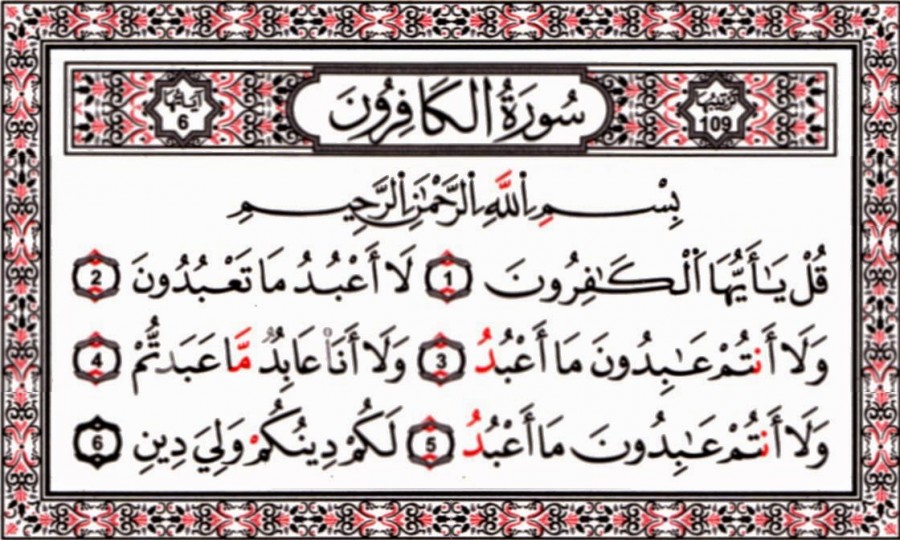 ترتيبها 109 سُورَةُ الكَافِرُونَ آياتها 6
بِسْمِ اللَّهِ الرَّحْمَٰنِ الرَّحِيمِ
قُلْ يَـٰٓأَيُّهَا ٱلْكَـٰفِرُونَ 1 لَآ أَعْبُدُ مَا تَعْبُدُونَ 2
وَلَآ أَنتُمْ عَـٰبِدُونَ مَآ أَعْبُدُ 3 وَلَآ أَنَا۠ عَابِدٌ مَّا عَبَدتُّمْ 4
وَلَآ أَنتُمْ عَـٰبِدُونَ مَآ أَعْبُدُ 5 لَكُمْ دِينُكُمْ وَلِيَ دِينِ 6